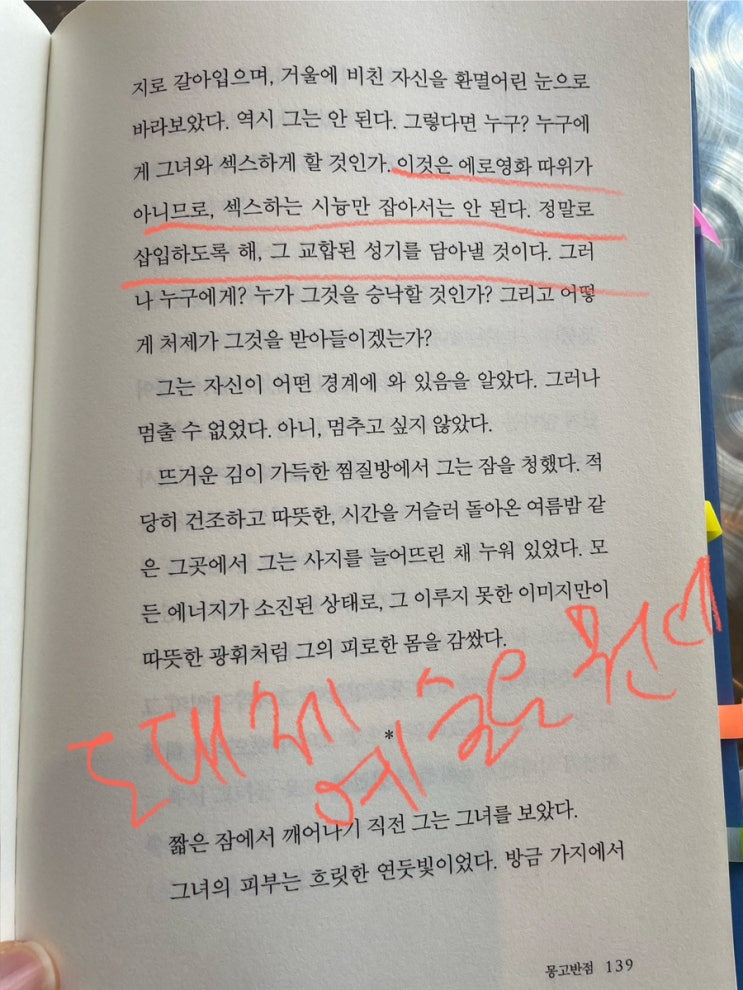 지로 갈아입으며, 거울에 비친 자신을 환멸어린 눈으로
바라보았다. 역시 그는 안 된다. 그렇다면 누구? 누구에
게 그녀와 섹스하게 할 것인가. 이것은 에로영화 따위가
아니므로, 섹스하는 시늉만 잡아서는 안 된다. 정말로
삽입하도록 해, 그 교합된 성기를 담아낼 것이다. 그러
나 누구에게? 누가 그것을 승낙할 것인가? 그리고 어떻
게 처제가 그것을 받아들이겠는가?
그는 자신이 어떤 경계에 와 있음을 알았다. 그러나
멈출 수 없었다. 아니, 멈추고 싶지 않았다.
뜨거운 김이 가득한 찜질방에서 그는 잠을 청했다. 적
당히 건조하고 따뜻한, 시간을 거슬러 돌아온 여름밤 같
은 그곳에서 그는 사지를 늘어뜨린 채 누워 있었다. 모
든 에너지가 소진된 상태로, 그 이루지 못한 이미지만이
따뜻한 광휘처럼 그의 피로한 몸을 감쌌다.
도대체 예술은 뭔데
*
짧은 잠에서 깨어나기 직전 그는 그녀를 보았다.
그녀의 피부는 흐릿한 연둣빛이었다. 방금 가지에서
몽고반점 139